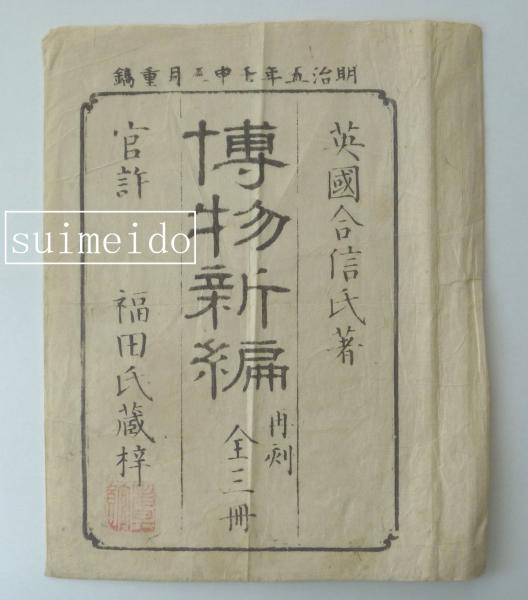 明治五年壬申三月重鐫
英國合信氏著
博物新編
再刻
全三冊
官許
福田氏藏梓
suimeido